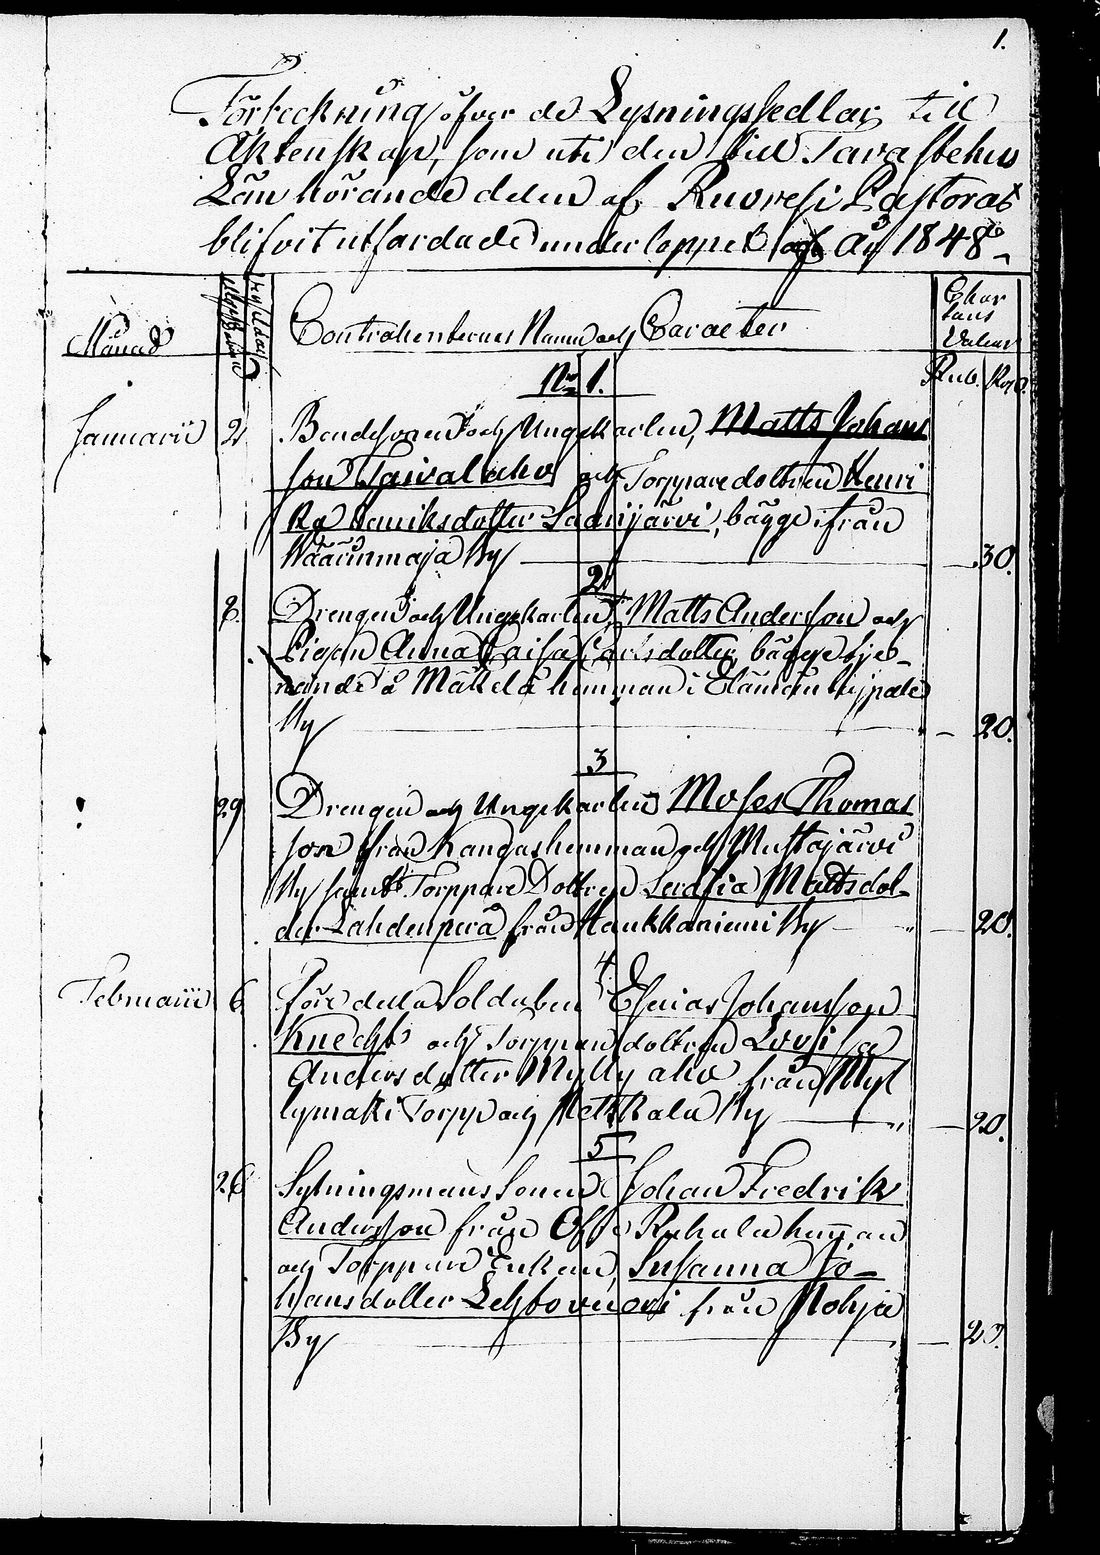 1.
Förteckning öfver de Lysningssedlar till
Äktenskap, som uti den till Tavastehus
Län hörande delen af Ruovesi Pastorat
blifvit utfärdade under loppet af År 1848
Månad
Contrahenternes Namn och Caracter
Char
tans
Valeur
Rub. Kop.
No 1.
Januarii 2 Bondesonen och Ungekarlen, Matts Johans
son Taival aho och Torpparedottren Henri
ka Henriksdotter Saarijärvi, bägge ifrån
Wäärinmaja By 30.
2
8. Drengen och Ungekarlen, Matts Andersson och
Pigan Anna Caisa Carlsdotter, bägge tje-
nande å Mäkelä hemman i
By 20.
3
29 Drengen och Ungekarlen Moses Thomas
son från Kangas hemman och Mustajärvi
By samt Torppare Dottren Serafia Mattsdot-
ter Lahdenperä från Haukkaniemi By 20.
4
Februarii 6 Före detta Soldaten Esaias Johansson
Knecht och Torppare dottren Lovisa
Andersdotter Mylly aho från Myl
lymäki Torpp och By 20.
5
26 Sytningsmans Sonen Johan Fredrik
Andersson från Ruhala hemman
och Torppare Enkan, Susanna Jo-
hansdotter från Pohja
By 20.